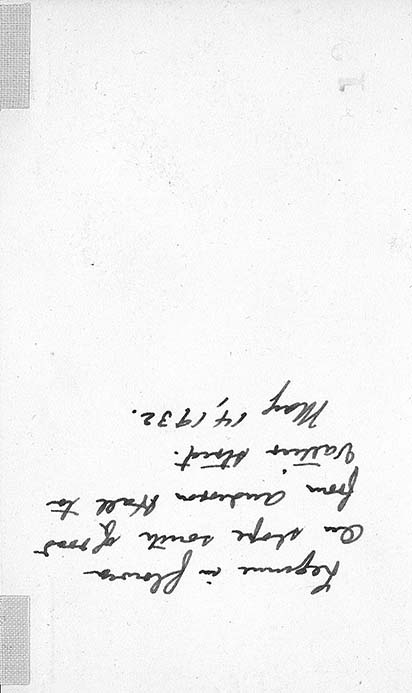 Legume in flower
On slope south of road
from Anderson Hall to
Vattier Street.
May 14, 1932.